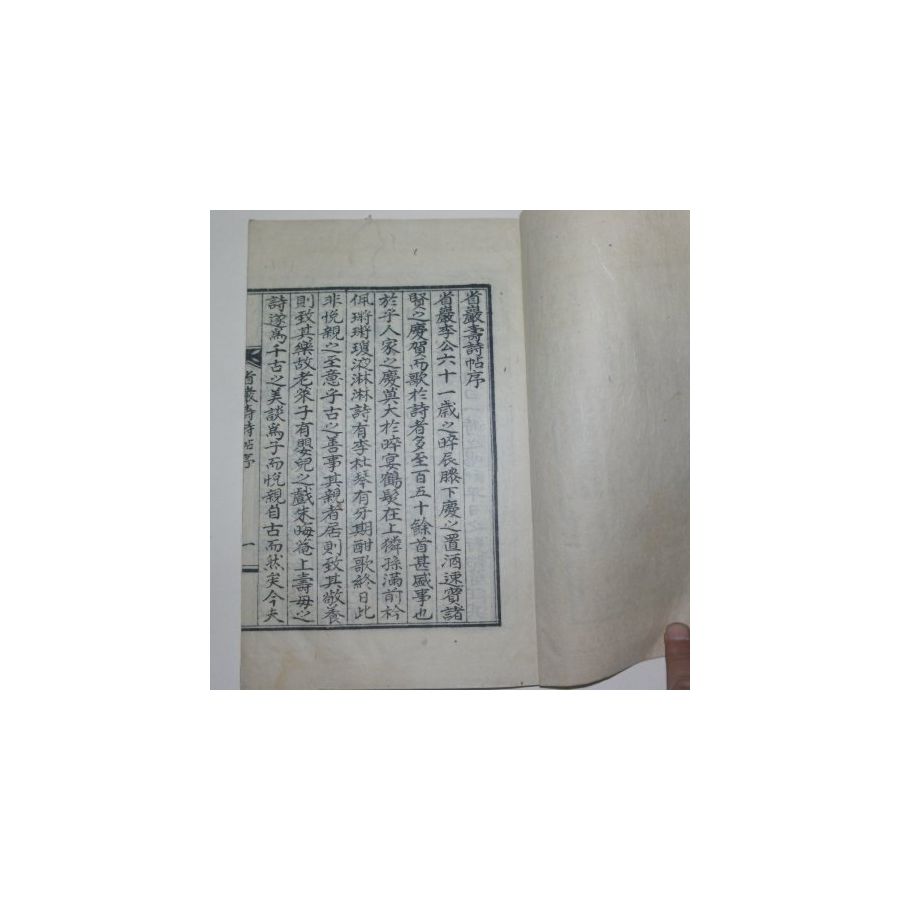 省巖壽詩帖序
省巖李公六十一歲之晬辰膝下慶之置酒速賓諸
賢之慶賀而歌於詩者多至百五十餘首甚盛事也
於乎人家之慶莫大於晬宴鶴髮在上獜孫滿前衿
佩鏘鏘瓊液淋淋詩有李杜琴有牙期酣歌終日此
非悅親之至意乎古之善事其親者居則致其敬養
則致其樂故老萊子有嬰兒之戲朱晦菴上壽母之
詩遂爲千古之美談爲子而悅親自古而然矣今夫
省巖壽詩帖序
一